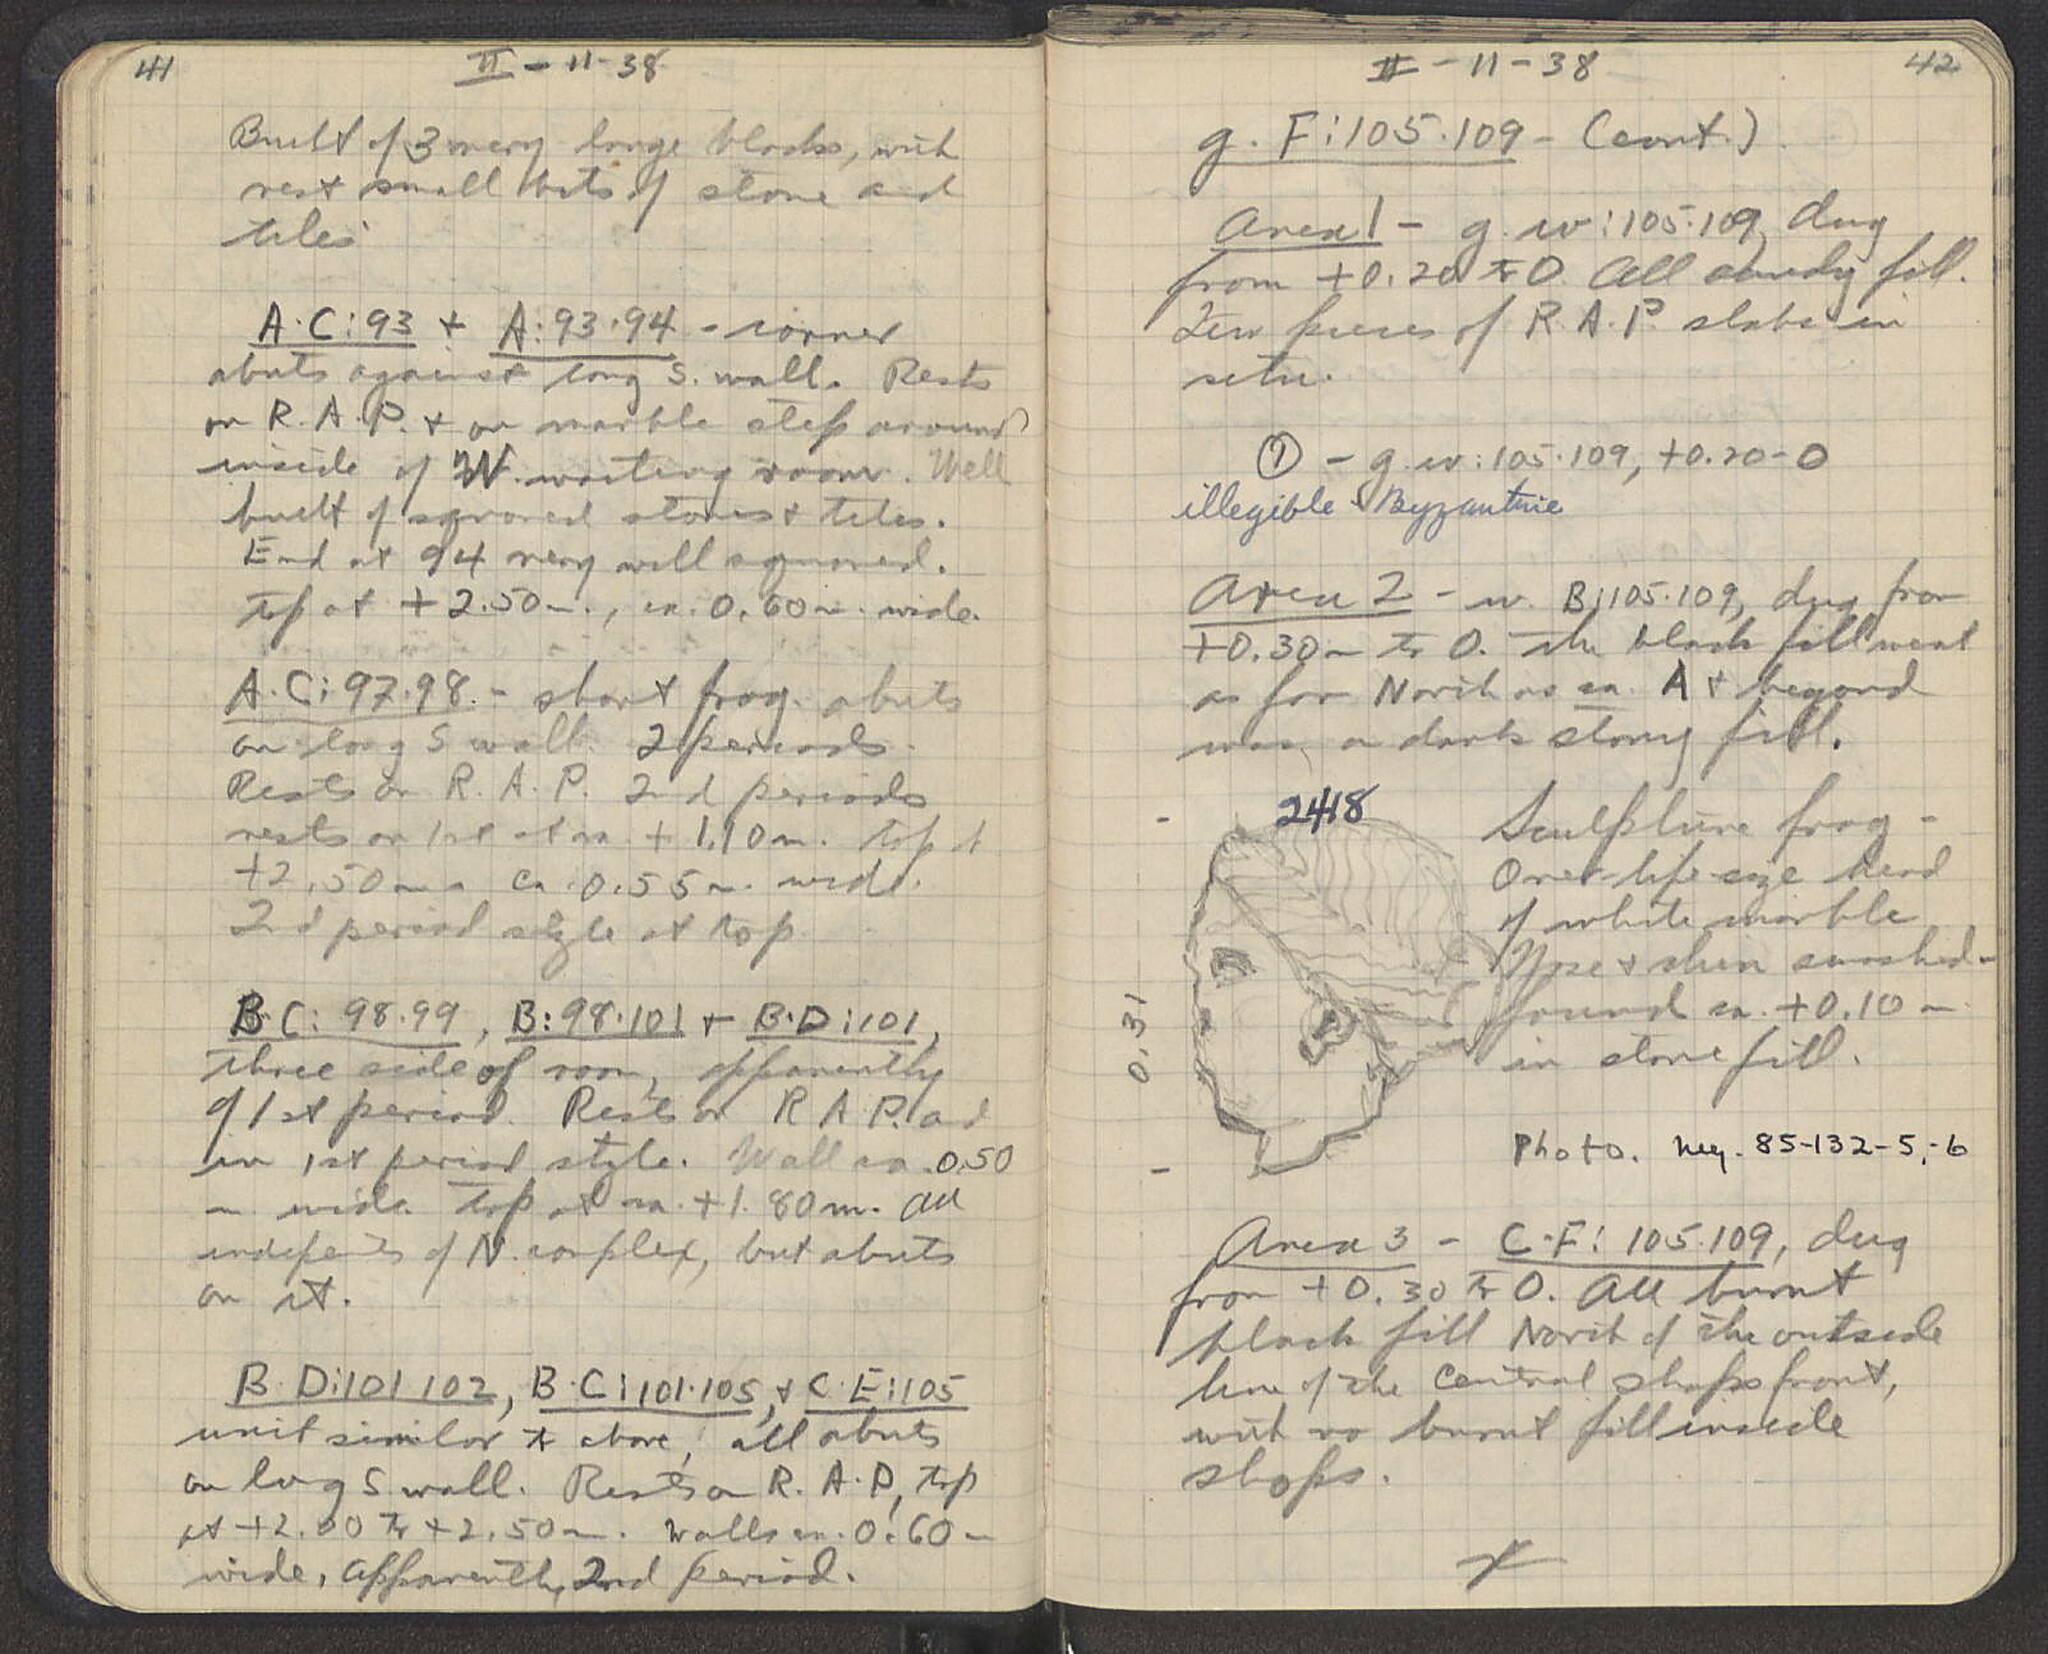 41
II - 11-38
Built of 3 very large blocks, with
rest small bits of stone and
tiles
A·C:93 + A:93·94 - corner
abuts against long S. wall. Rests
on R.A.P. + on marble step around
inside of W. waiting room. Well
built of squared stones + tiles.
End at 94 very well squared.
top at +2.50m., ca. 0.60m. wide.
A·C:97·98. - short frag. abuts
on long S wall. 2 periods.
Rests on R.A.P. 2nd periods
rests on 1st at ca. +1.10m. top at
+2.50m. ca. 0.55m. wide.
2nd period style at top.
B·C: 98·99, B:98·101 + B·D:101,
three side of room, apparently
of 1st period. Rests on R A P. and
in 1st period style. Wall ca. 0.50
m wide. top at ca. +1.80m. All
of N. complex, but abuts
on it.
B·D:101 102, B·C:101·105, + C·E:105
unit similar to above, all abuts
on long S wall. Rests on R.A.P, top
at +2.00 to +2.50m. Walls ca. 0.60m
wide, apparently 2nd period.
II - 11-38
42
g. F:105.109 - (cont.)
Area 1 - g. w:105.109, dug
from +0.20 to 0. All sandy fill.
Few pieces of R.A.P. slabs in
situ.
① - g. w:105.109, +0.20-0
illegible Byzantine
Area 2 - w. B:105.109, dug from
+0.30m to 0. The black fill went
as far North as ca. A + beyond
was a dark stony fill.
2418
Sculpture frag -
Over-life-size head
of white marble
Nose + chin smashed -
found ca. +0.10m
in stone fill.
0.31
Photo. neg. 85-132-5,-6
Area 3 - C·F: 105.109, dug
from +0.30 to 0. All burnt
black fill North of the outside
line of the Central shops front,
with no burnt fill inside
shops.